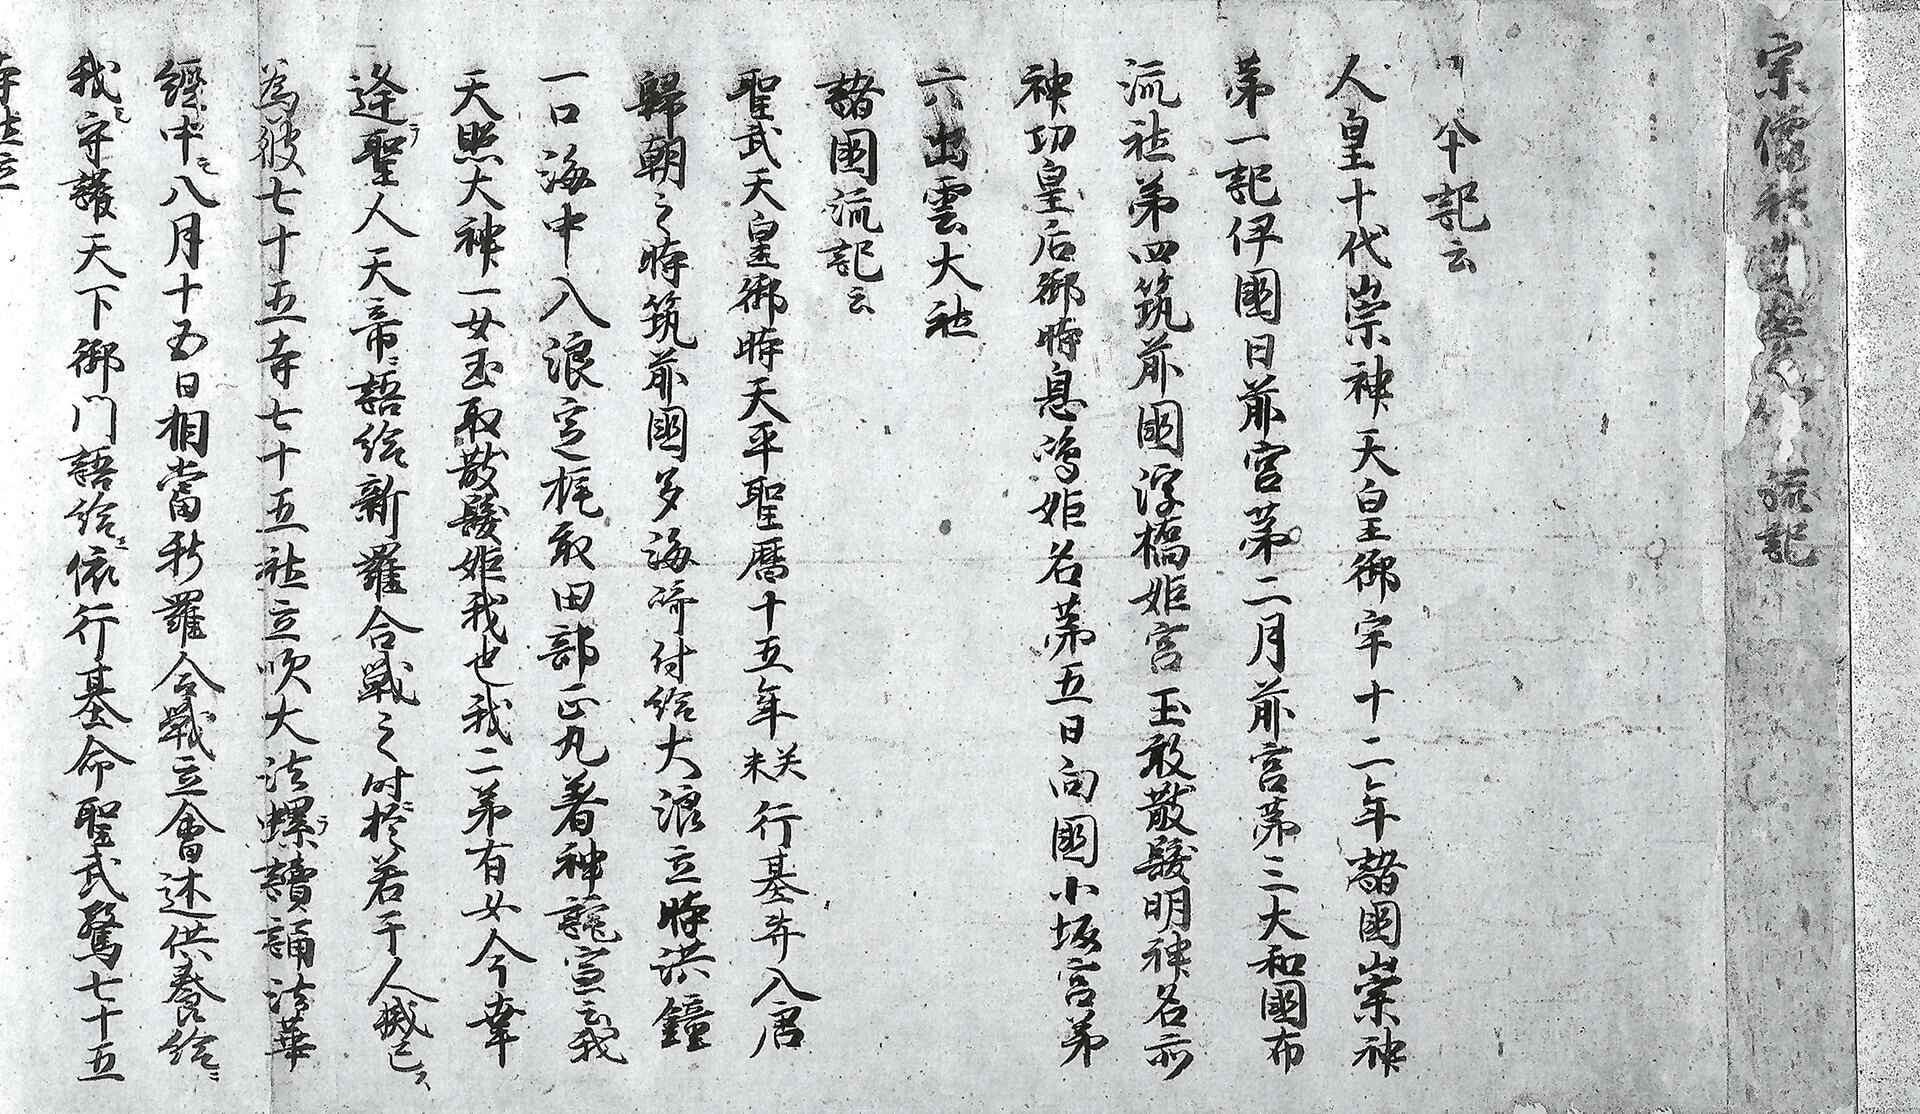 宗像社
流記
本記云
人皇十代崇神天皇御宇十二年諸國崇神
第一記伊國日前宮第二月前宮第三大和國布
流社第四筑前國浮橋姫宮玉敢散髪明神名前
神功皇后御時息鴻姫名第五日向國小坂宮第
六出雲大社
諸國流記云
聖武天皇御時天平聖暦十五年癸未行基并入唐
歸朝之時筑前國多海所付給大浪立時洪鐘
一口海中入浪定梶取田部正丸著神託宣云我
天照大神一女玉取散髪姫我也我二第有女今幸
逢聖ラ人天帝ニ語給新羅合戦之時於若干人滅已ヌ
為彼七十五寺七十五社立吹大法螺ラ讀誦法華
經中ニ八月十五日相當新羅合戦立會述供養給ニ
我ニ守護天下御門語給ニ依行基命聖武驚七十五
寺社立